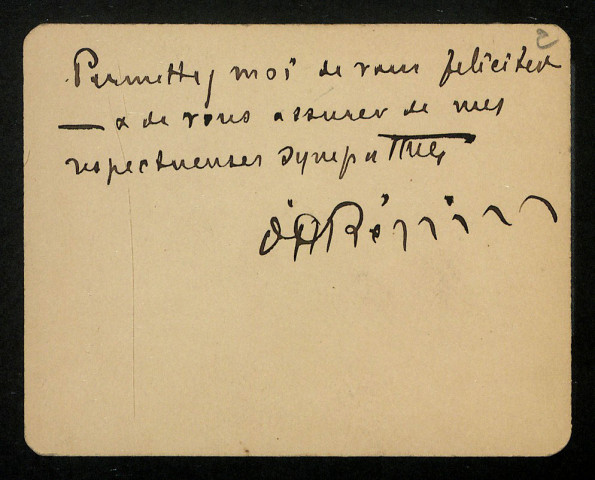 2
Permettez moi de vous féliciter
— & de vous assurer de mes
respectueuses sympathies